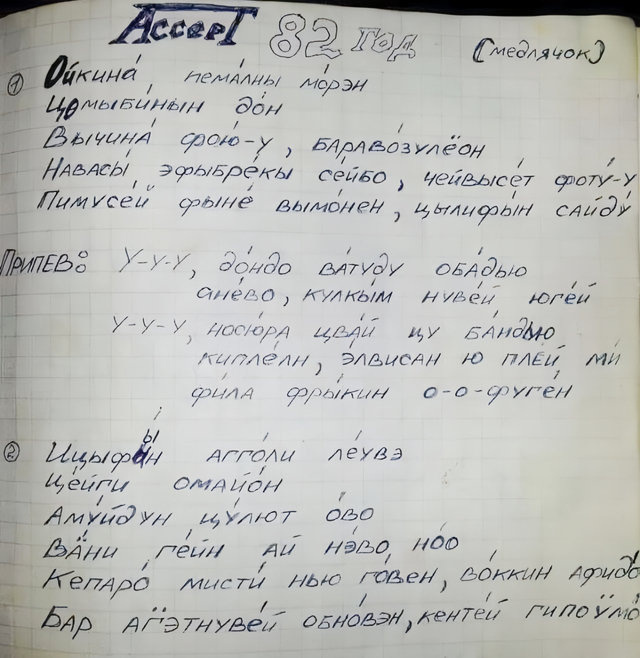 Accept 82 год (медлячок)
① Ойкина́ пема́лны мо́рэн
Цомыби́нын до́н
Вычина́ фою́-у, бараво́зулёон
Навасы́ эфыбре́кы се́йбо, чейвысе́т фоту́-у
Пимусе́й фыне́ вымо́нен, цылифы́н сайду́
Припев: У-у-у, до́ндо ва́туду оба́дью
ане́во, кулкы́м нуве́й юге́й
У-у-у,носю́ра цва́й цу ба́ндью
кипле́лн, э́лвисан ю пле́й ми́
фи́ла фры́кин о-о-фуге́н
② Ицыфы́н агго́ли ле́увэ
Це́йги омайо́н
Аму́йдун цу́лют о́во
Ва́ни ге́йн ай нэ́во, но́о
Кепаро́ мисти́ нью го́вен, во́ккин афидо́
Бар аг'этнуве́й обно́вэн, кенте́й гипоўмо́